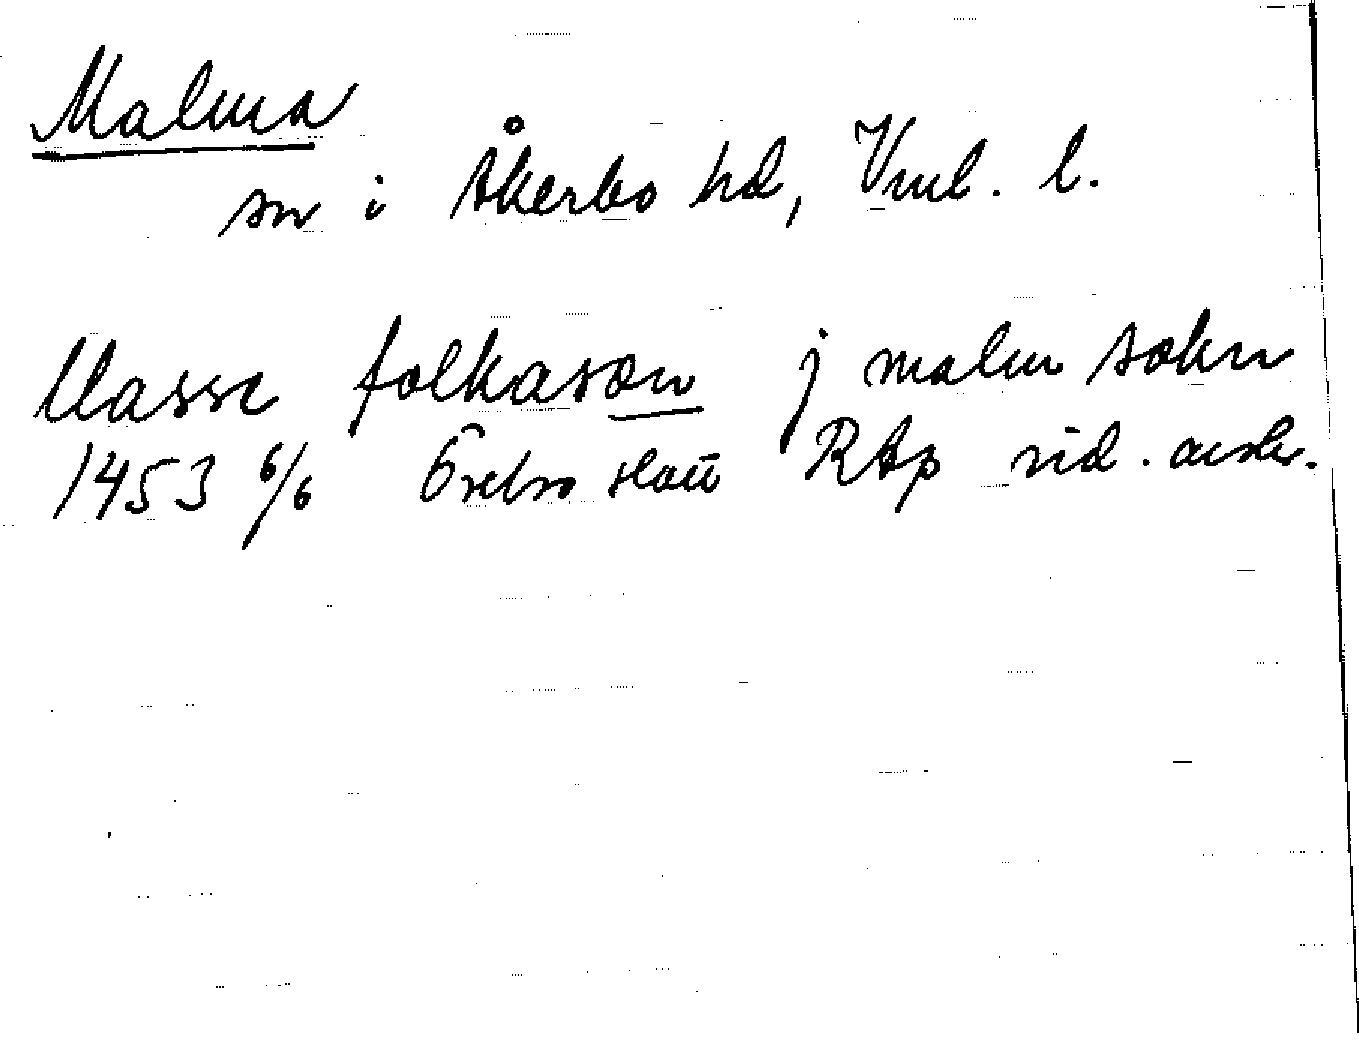 Malma
sn i Åkerbo hd, Vml. l.
Classe folkason j malm sokn
1453 6/6 Örebro slott RAp vid. avskr.